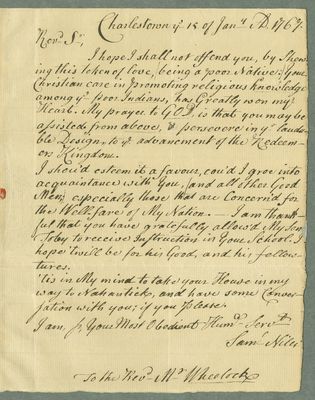 Charlestown yᵉ 15 of Janʸ A.D. 1767.
Revᵈ Sʳ,
I hope I shall not offend you, by Shew
ing this token of love, being a poor Native; Your
Christian care in promoting religious knowledge
among yᵉ Poor Indians, has Greatly won my
Heart. My prayer to GOD, is that you may be
assisted from above, & persevere in yᵉ lauda-
ble Design, to yᵉ advancement of the Redeem-
ers Kingdom.
I shou'd esteem it a favour, cou'd I grow into
acquaintance with You, and all other Good
Men; especially those that are Concern'd for
the Wellfare of My Nation. — I am thank-
ful that you have gratefully allow'd My Son
Toby to receive Instruction in Your School. I
hope 'twill be for his Good, and his fellow-
tures.
'tis in My mind to take your House in my
way to Nahantick, and have some Conver-
sation with you; if you Please.
I am Sʳ Your Most Obedient Humᵉ Servᵗ
Samˡ Niles
To the Revᵈ Mʳ Wheelock